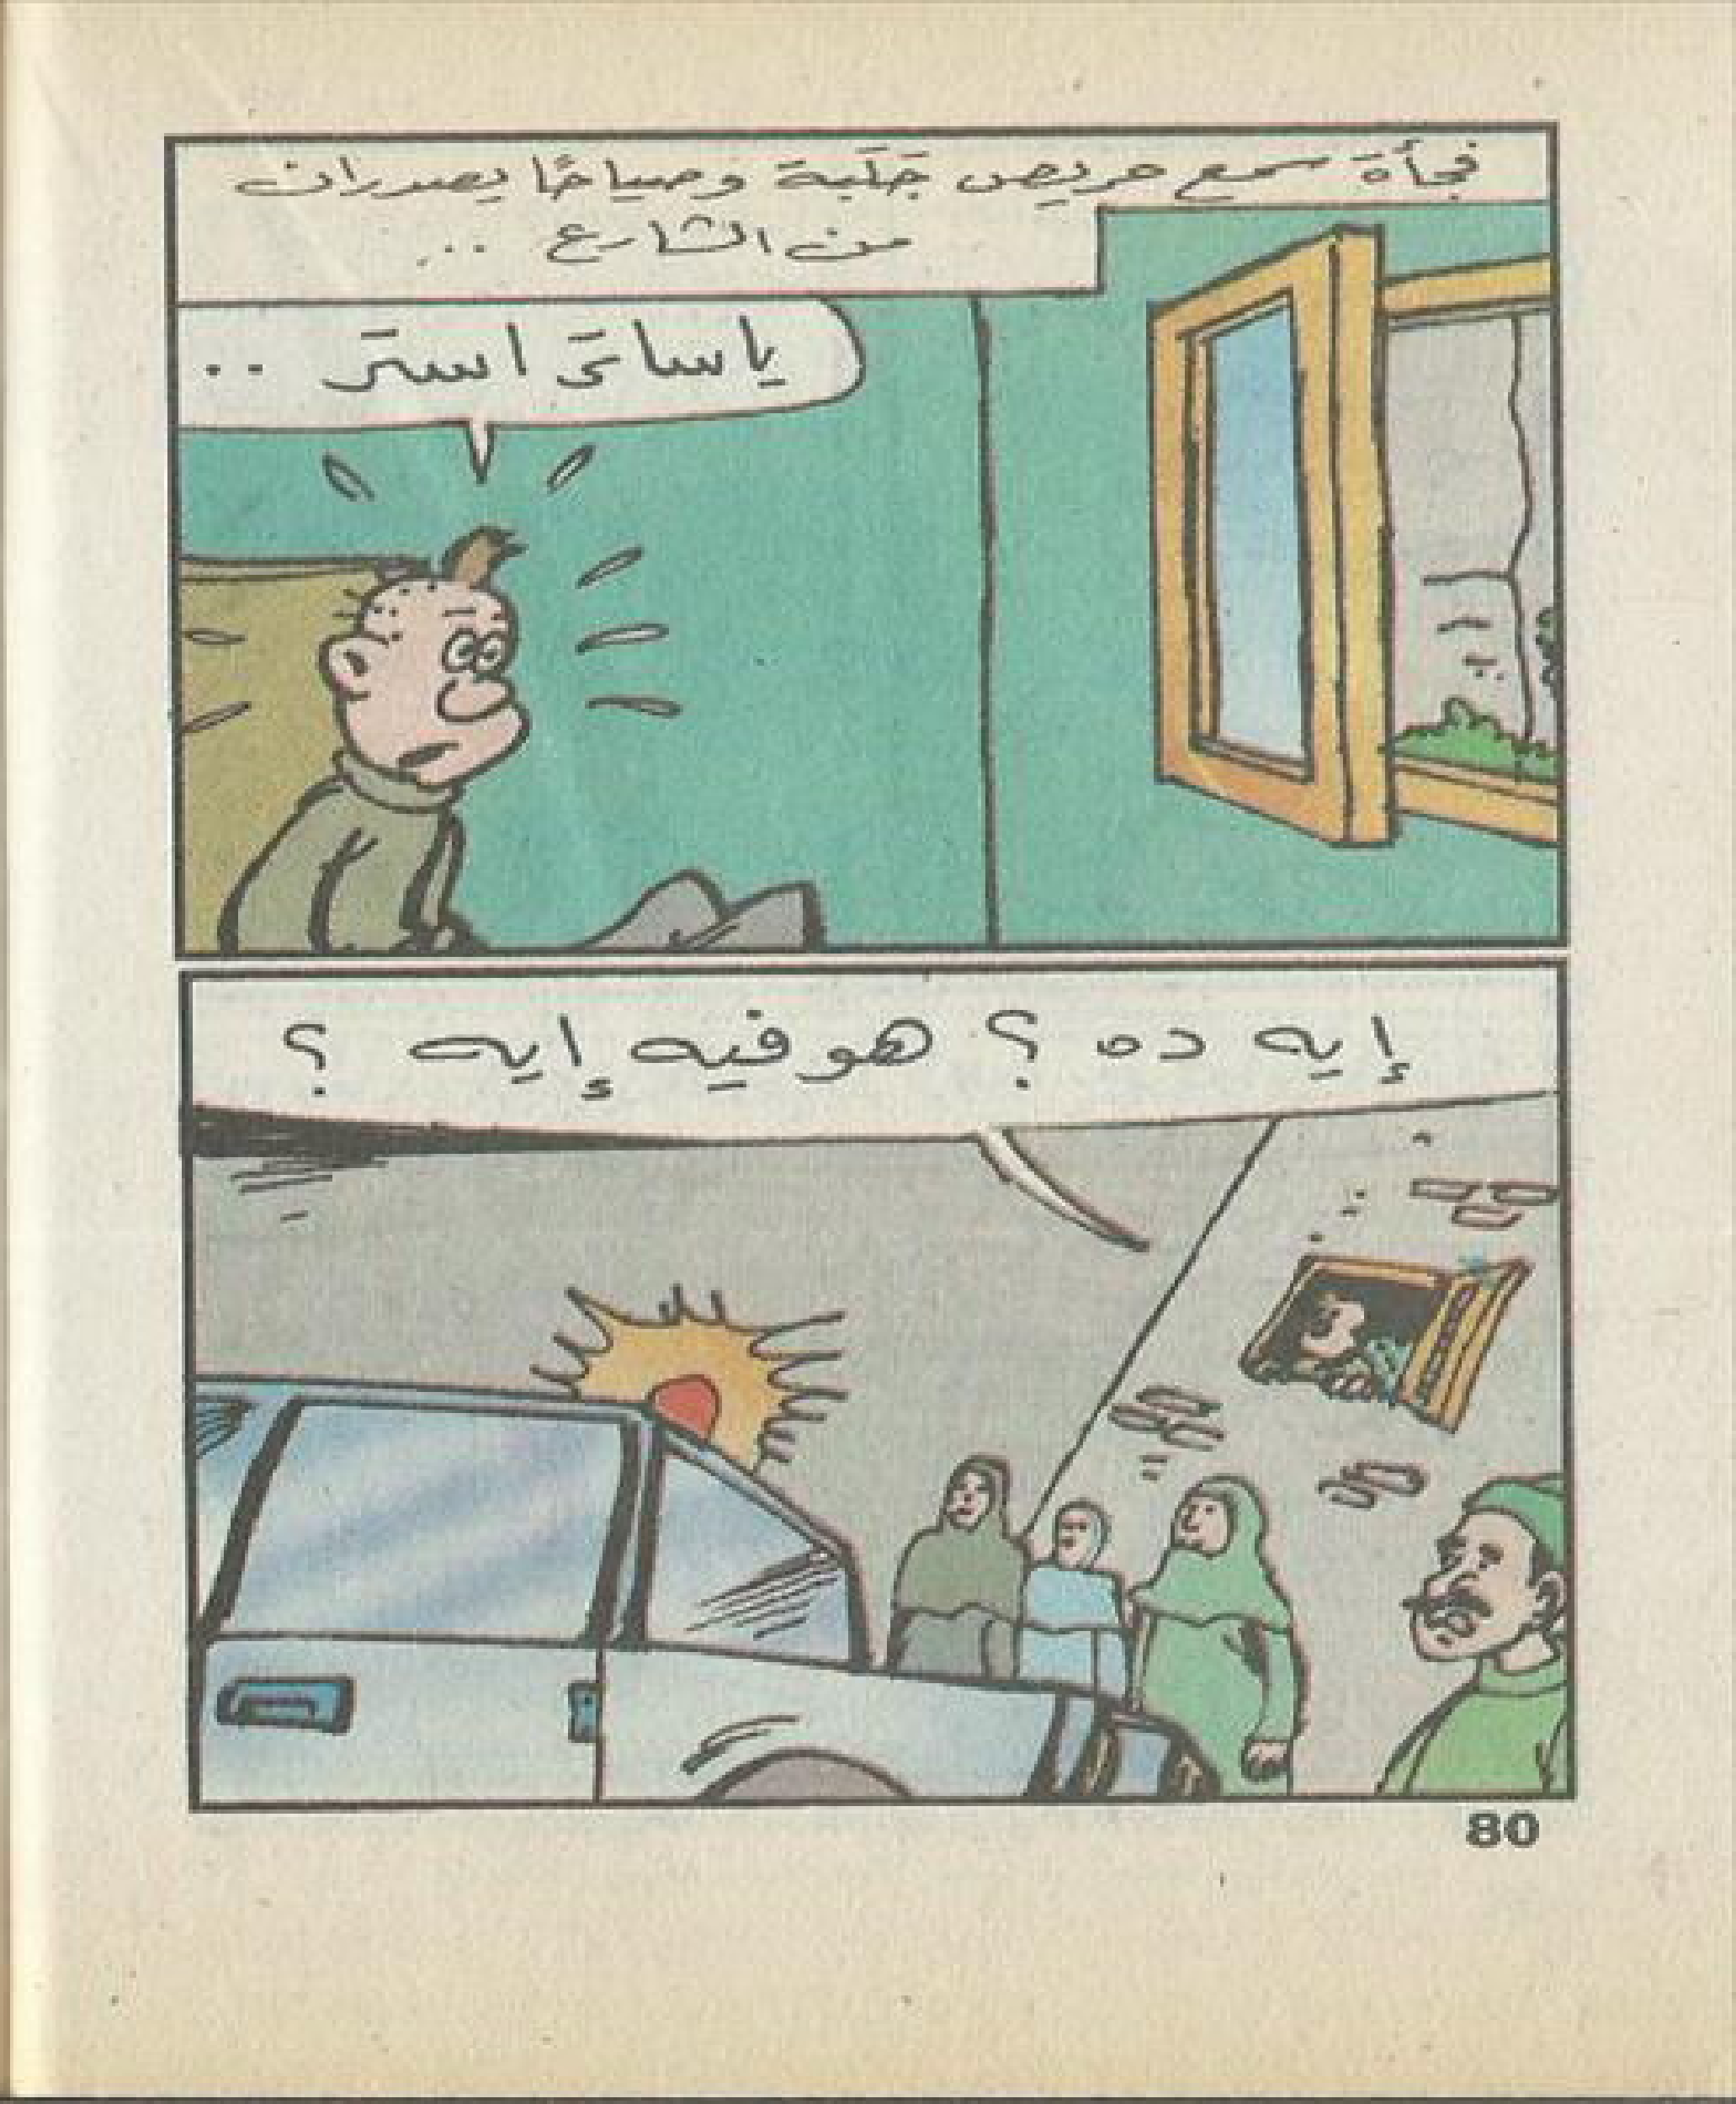 فجأة سمع حريص جَلَبة وصياحًا يصدران
من الشارع ..
ياساتر استر ..
إيه ده ؟ هو فيه إيه ؟
80